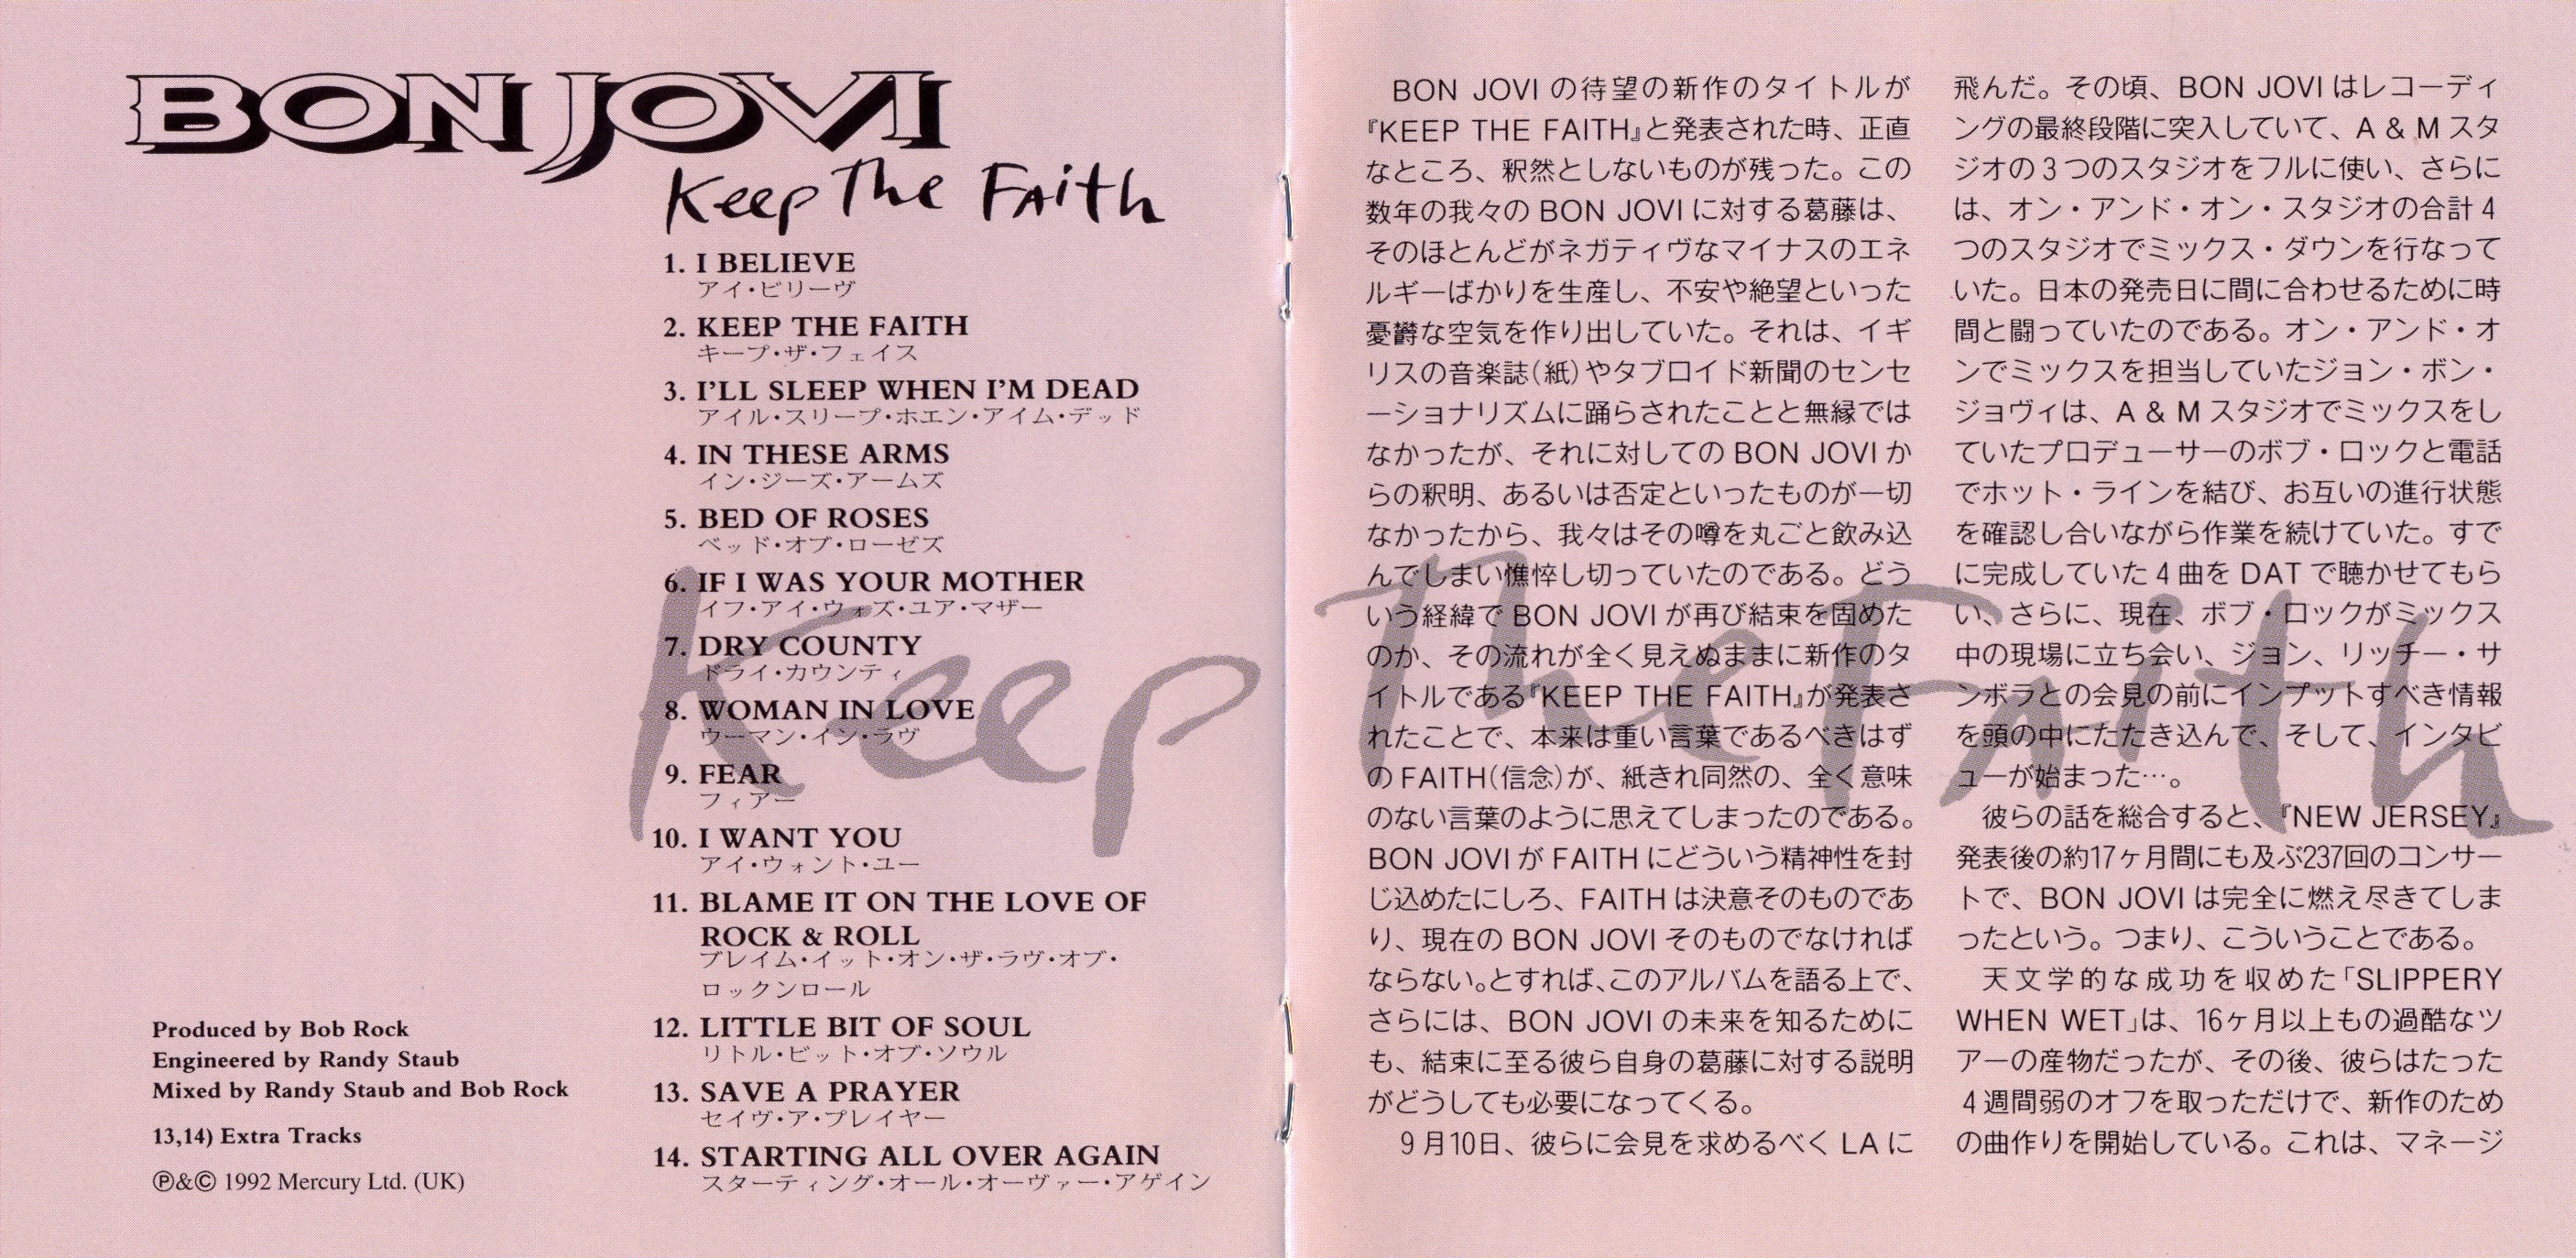 BON JOVI
Keep The Faith
1. I BELIEVE
アイ・ビリーヴ
2. KEEP THE FAITH
キープ・ザ・フェイス
3. I'LL SLEEP WHEN I'M DEAD
アイル・スリープ・ホエン・アイム・デッド
4. IN THESE ARMS
イン・ジーズ・アームズ
5. BED OF ROSES
ベッド・オブ・ローゼズ
6. IF I WAS YOUR MOTHER
イフ・アイ・ウォズ・ユア・マザー
7. DRY COUNTY
ドライ・カウンティ
8. WOMAN IN LOVE
ウーマン・イン・ラヴ
9. FEAR
フィアー
10. I WANT YOU
アイ・ウォント・ユー
11. BLAME IT ON THE LOVE OF
ROCK & ROLL
ブレイム・イット・オン・ザ・ラヴ・オブ・
ロックンロール
12. LITTLE BIT OF SOUL
リトル・ビット・オブ・ソウル
13. SAVE A PRAYER
セイヴ・ア・プレイヤー
14. STARTING ALL OVER AGAIN
スターティング・オール・オーヴァー・アゲイン
Produced by Bob Rock
Engineered by Randy Staub
Mixed by Randy Staub and Bob Rock
13,14) Extra Tracks
℗&© 1992 Mercury Ltd. (UK)
Keep The Faith
BON JOVI の待望の新作のタイトルが
『KEEP THE FAITH』と発表された時、正直
なところ、釈然としないものが残った。この
数年の我々の BON JOVI に対する葛藤は、
そのほとんどがネガティヴなマイナスのエネ
ルギーばかりを生産し、不安や絶望といった
憂鬱な空気を作り出していた。それは、イギ
リスの音楽誌(紙)やタブロイド新聞のセンセ
ーショナリズムに踊らされたことと無縁では
なかったが、それに対しての BON JOVI か
らの釈明、あるいは否定といったものが一切
なかったから、我々はその噂を丸ごと飲み込
んでしまい憔悴し切っていたのである。どう
いう経緯で BON JOVI が再び結束を固めた
のか、その流れが全く見えぬままに新作のタ
イトルである『KEEP THE FAITH』が発表さ
れたことで、本来は重い言葉であるべきはず
の FAITH(信念)が、紙きれ同然の、全く意味
のない言葉のように思えてしまったのである。
BON JOVI が FAITH にどういう精神性を封
じ込めたにしろ、FAITH は決意そのものであ
り、現在の BON JOVI そのものでなければ
ならない。とすれば、このアルバムを語る上で、
さらには、BON JOVI の未来を知るために
も、結束に至る彼ら自身の葛藤に対する説明
がどうしても必要になってくる。
9月10日、彼らに会見を求めるべく LA に
飛んだ。その頃、BON JOVI はレコーディ
ングの最終段階に突入していて、A & M スタ
ジオの3つのスタジオをフルに使い、さらに
は、オン・アンド・オン・スタジオの合計4
つのスタジオでミックス・ダウンを行なって
いた。日本の発売日に間に合わせるために時
間と闘っていたのである。オン・アンド・オ
ンでミックスを担当していたジョン・ボン・
ジョヴィは、A & M スタジオでミックスをし
ていたプロデューサーのボブ・ロックと電話
でホット・ラインを結び、お互いの進行状態
を確認し合いながら作業を続けていた。すで
に完成していた4曲を DAT で聴かせてもら
い、さらに、現在、ボブ・ロックがミックス
中の現場に立ち会い、ジョン、リッチー・サ
ンボラとの会見の前にインプットすべき情報
を頭の中にたたき込んで、そして、インタビ
ューが始まった…。
彼らの話を総合すると、『NEW JERSEY』
発表後の約17ヶ月間にも及ぶ237回のコンサー
トで、BON JOVI は完全に燃え尽きてしま
ったという。つまり、こういうことである。
天文学的な成功を収めた「SLIPPERY
WHEN WET」は、16ヶ月以上もの過酷なツ
アーの産物だったが、その後、彼らはたった
4週間弱のオフを取っただけで、新作のため
の曲作りを開始している。これは、マネージ